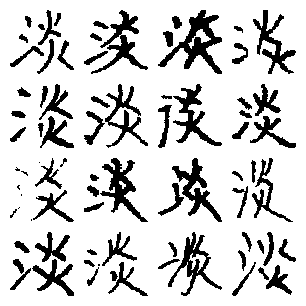 淡淡淡淡
淡淡淡淡
淡淡淡淡
淡淡淡淡